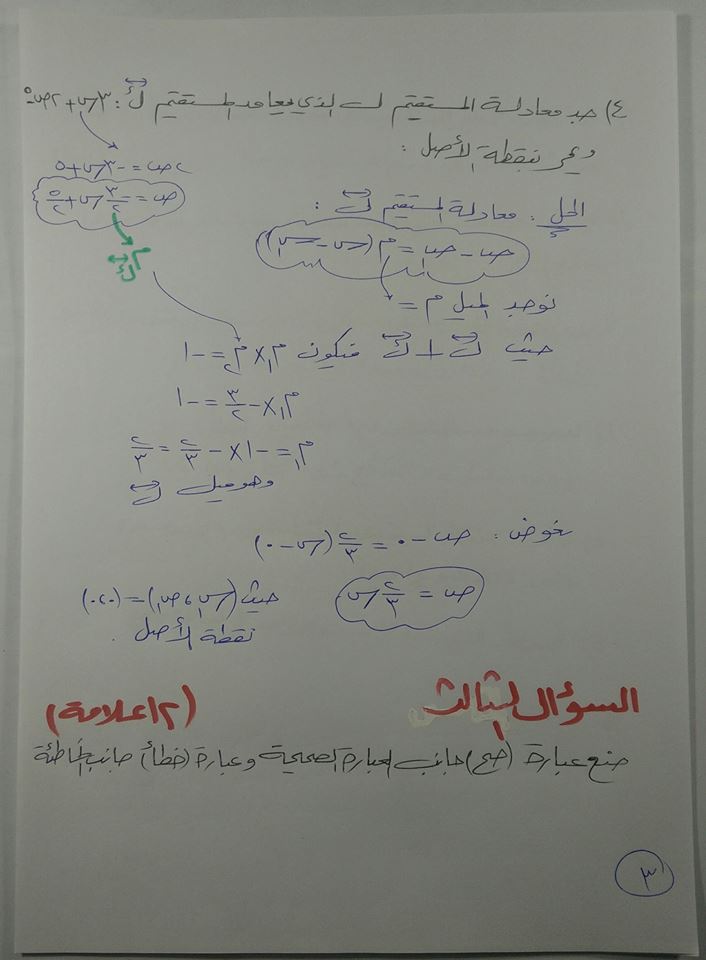 ٤) جد معادلة المستقيم ل الذي يعامد المستقيم ل٢: ٣س + ٢ص = ٥
ويمر بنقطة الأصل :
٢ص = -٣س + ٥
ص = -٣/٢ س + ٥/٢
م٢
ل٢
الحل : معادلة المستقيم ل١ :
ص - ص١ = م(س - س١)
نوجد الميل م =
حيث ل١ ⊥ ل٢ فتكون م١ × م٢ = -١
م١ × -٣/٢ = -١
م١ = -١ × -٢/٣ = ٢/٣
وهو ميل ل١
نعوض : ص - ٠ = ٢/٣ (س - ٠)
ص = ٢/٣ س
حيث (س١، ص١) = (٠،٠)
نقطة الأصل .
السؤال الثالث (١٢ علامة)
ضع عبارة (صح) جانب العبارة الصحيحة وعبارة (خطأ) جانب الخاطئة
٣